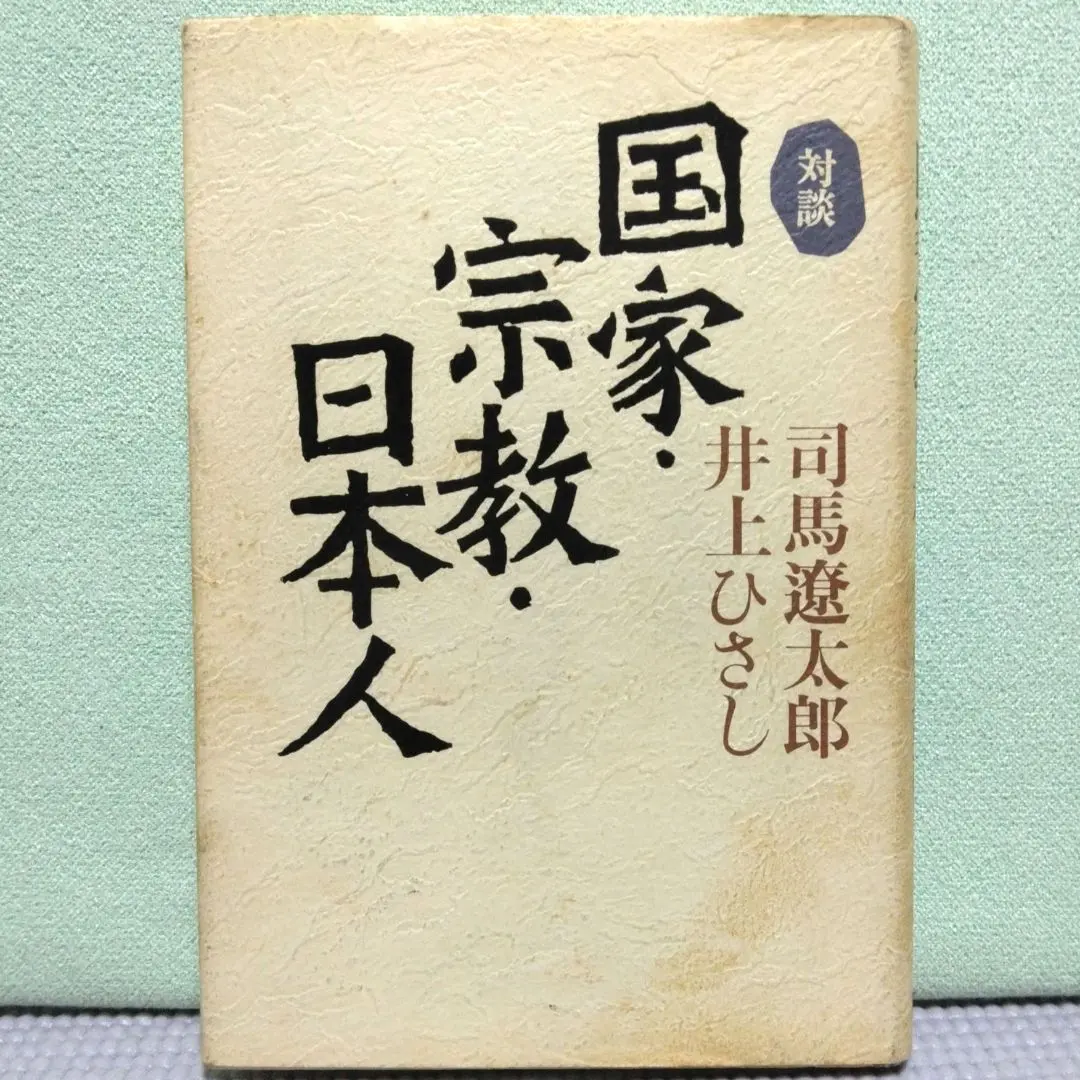 対談
国家・
宗教・
日本人
司馬遼太郎
井上ひさし